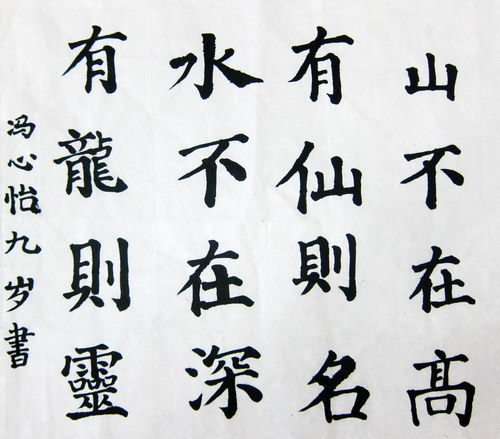 山不在高
有仙則名
水不在深
有龍則靈
冯心怡九岁書